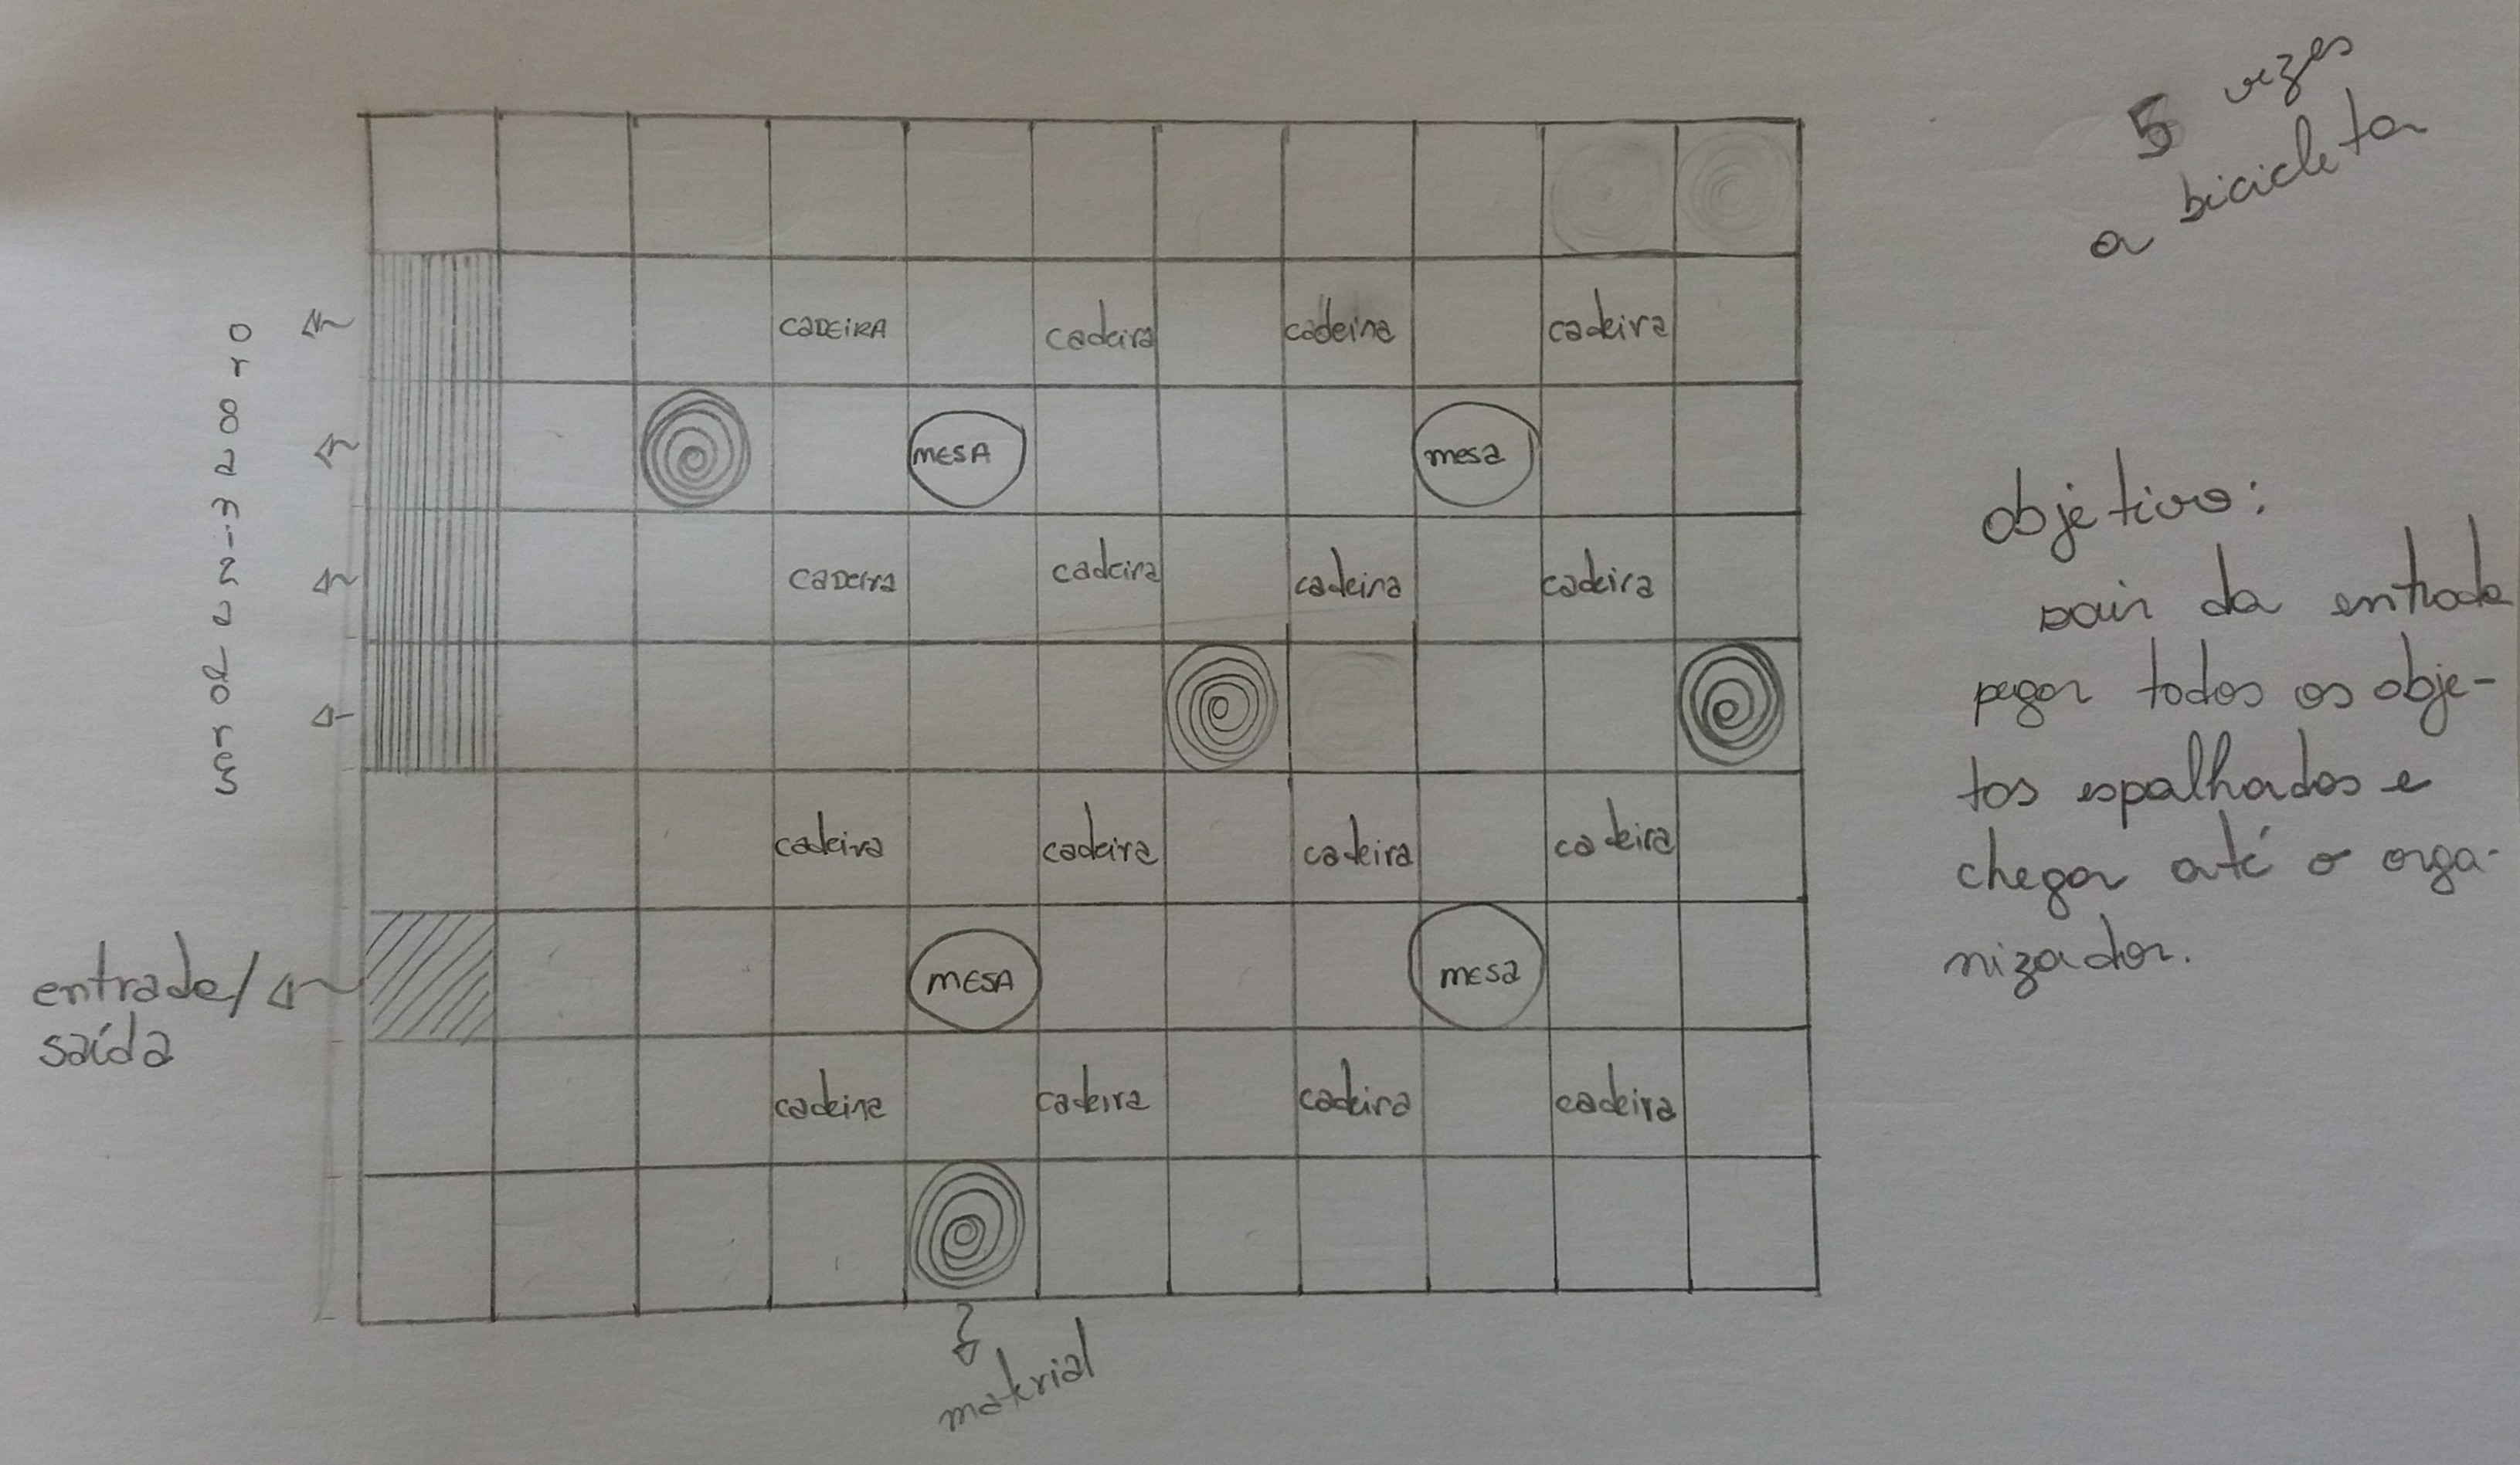 5 vezes
a bicicleta
CADEIRA cadeira cadeira cadeira
MESA mesa
cadeira cadeira cadeira cadeira
cadeira cadeira cadeira cadeira
MESA mesa
cadeira cadeira cadeira cadeira
organizadores
entrada/
saída
material
objetivo:
sair da entrada
pegar todos os obje-
tos espalhados e
chegar até o orga-
nizador.